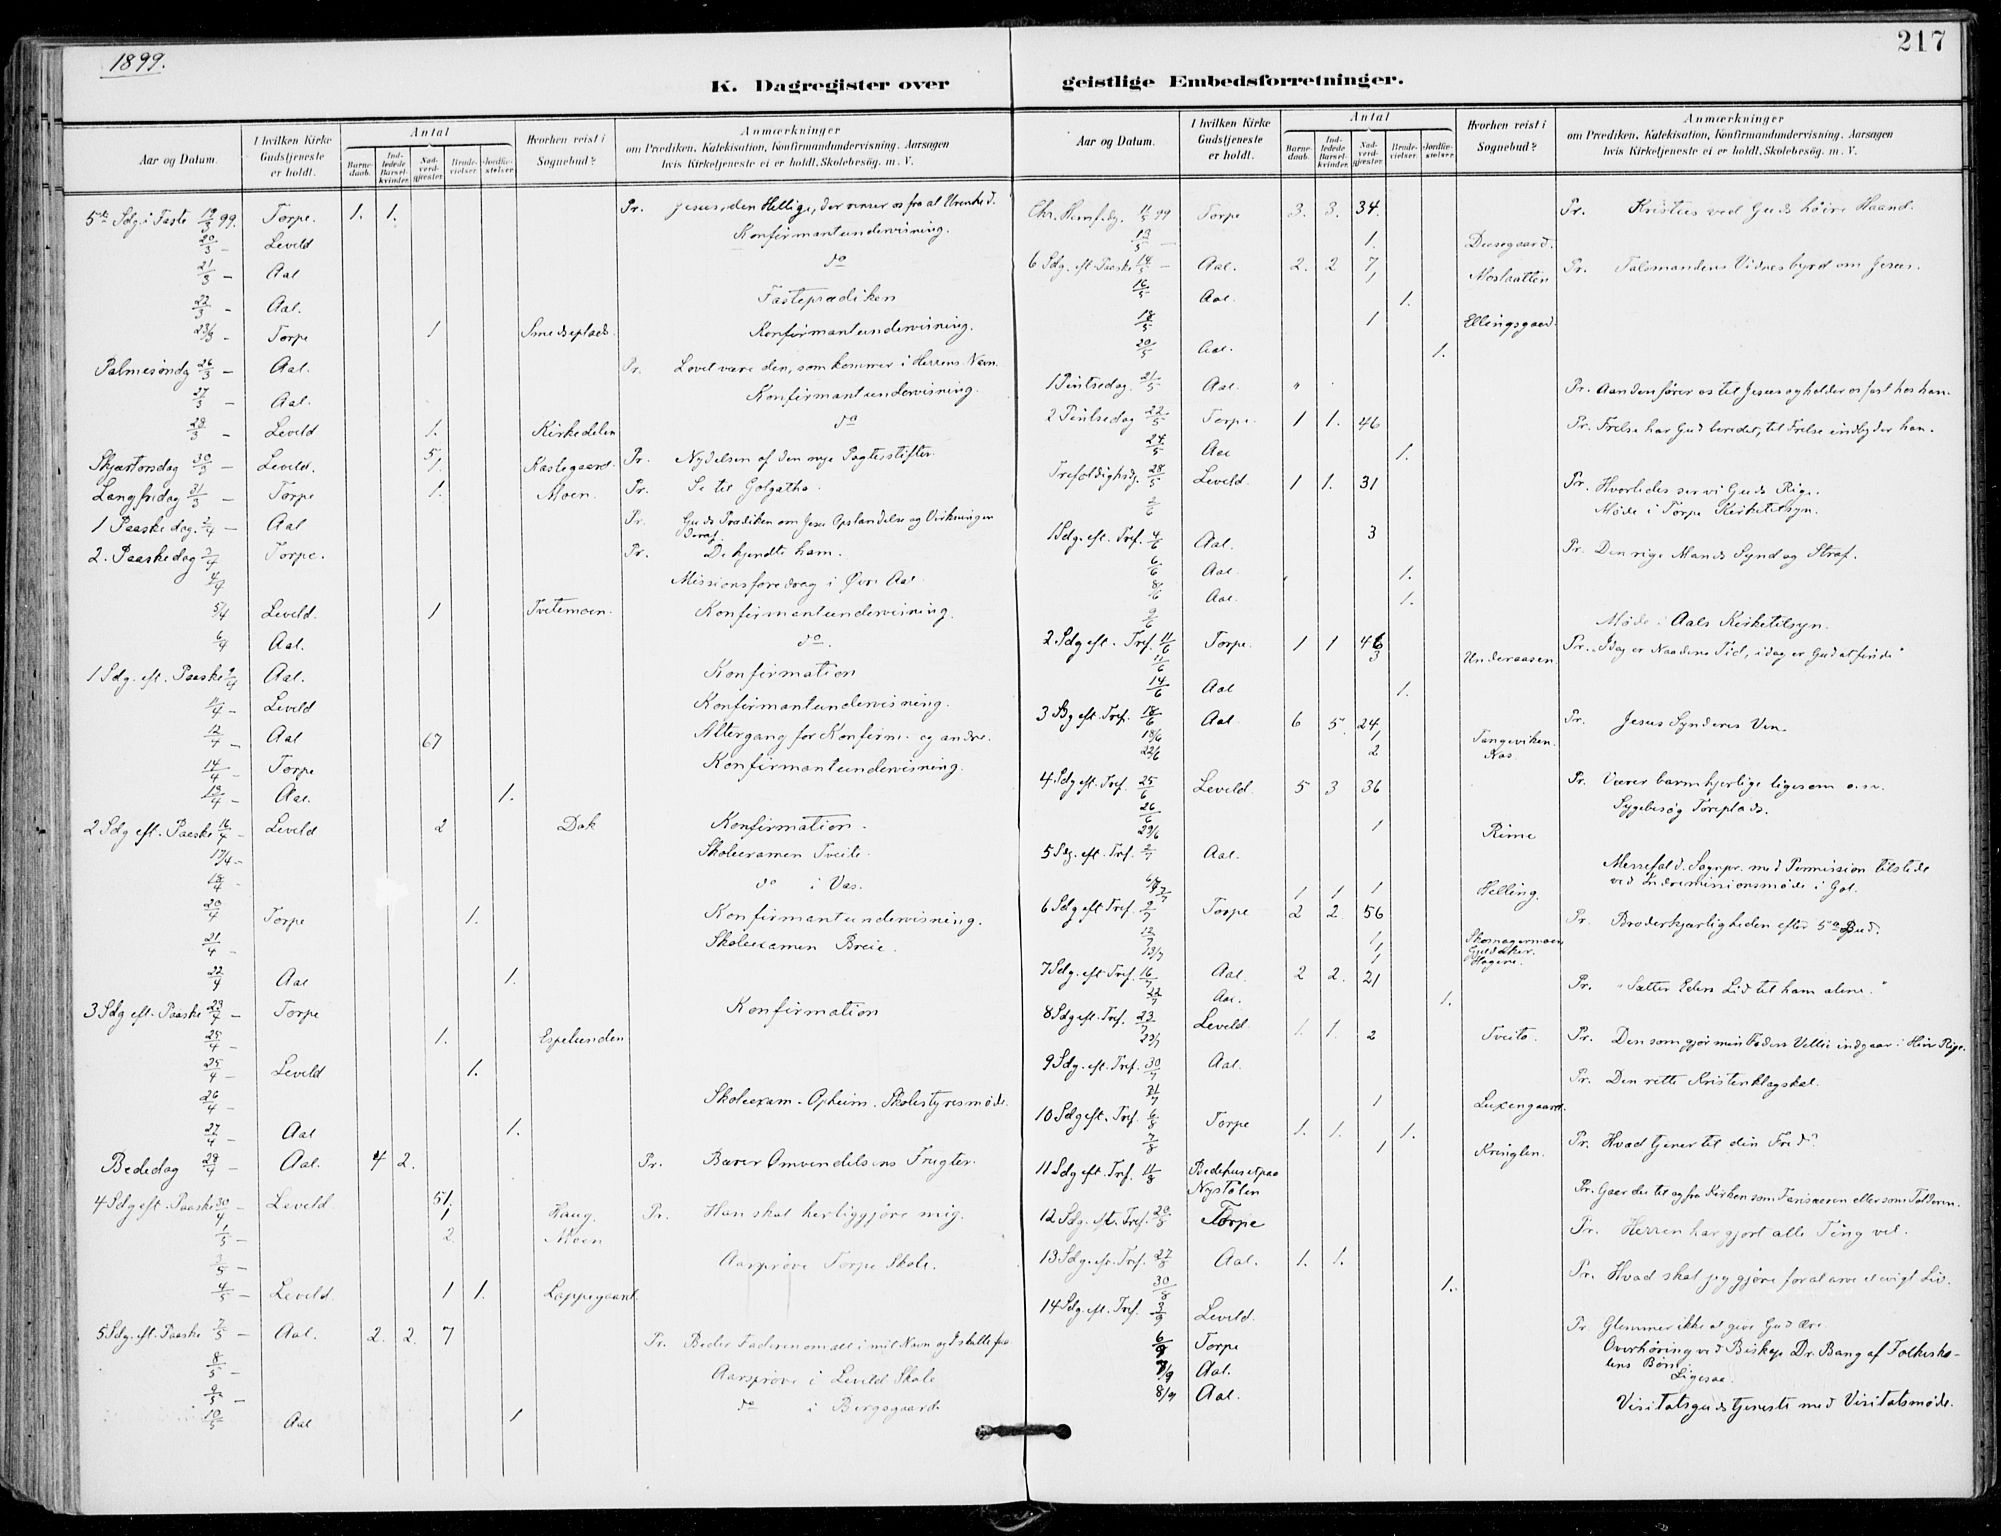 1899.
217
K. Dagregister over geistlige Embedsforretninger.
Aar og Datum. I hvilken Kirke Gudstjeneste er holdt. Antal Barnedaab. Indledede Barselkvinder. Nadverdgjæster. Brudevielser. Jordfæstelser. Hvorhen reist i Sognebud? Anmærkninger om Prædiken, Katekisation, Konfirmandundervisning, Aarsagen hvis Kirketjeneste ei er holdt, Skolebesøg. m. V.
5te Sdg. i Faste 19/3 99. Torpe. 1. 1. Pr. Jesus, den Hellige, der renser os fra al Urenhed.
20/3 – Leveld Konfirmantundervisning.
21/3 – Aal do
22/3 – Aal. Fasteprædiken
23/3 – Torpe 1 Smedsplads. Konfirmantundervisning.
Palmesøndag 26/3 – Aal. Pr. Lovet være den, som kommer i Herrens Navn.
27/3 – Aal. Konfirmantundervisning.
28/3 – Leveld 1. Kirkedelen do
Skjærtorsdag 30/3 – Leveld. 51 1. Kaslegaard. Pr. Nydelsen af den nye Pagtesstifter.
Langfredag 31/3 – Torpe 1. Moen. Pr. Se til Golgatha.
1 Paaskedag. 2/4 – Aal Pr. Guds Prædiken om Jesu Opstandelse og Virkningen deraf.
2. Paaskedag 3/4 Torpe. Pr. De kjendte ham.
4/4 Missionsforedrag i Øvre Aal.
5/4 Leveld. 1 Tvetemoen. Konfirmantundervisning.
6/4 Aal. do.
1 Sdg. eft. Paaske 9/4 Aal. Konfirmation
11/4 – Leveld Konfirmantundervisning.
12/4 – Aal 67 Altergang for Konfirm. og andre.
14/4 – Torpe Konfirmantundervisning.
15/4 – Aal. 1.
2 Sdg eft. Paaske 16/4 – Leveld 2 Dok Konfirmation.
17/4 – Skoleexamen Tveite.
18/4 – do i Vas.
20/4 Torpe 1. Konfirmantundervisning.
21/4 – Skoleexamen Breie.
22/4 Aal 1.
3 Sdg eft. Paaske 23/4 – Torpe Konfirmation
25/4 – 1. Espelunden
25/4 – Leveld 1.
26/4 – Skoleexam. Opheim. Skolestyresmøde.
27/4 – Aal 1.
Bededag 28/4 – Aal. 4 2. Pr. Bærer Omvendelsens Frugter.
4 Sdg eft. Paaske 30/4 – Leveld 51. 1 Haug. Pr. Han skal herliggjøre mig.
1/5 – 2 Moen
3/5 – Aarsprøve Torpe Skole.
4/5 – Leveld. 1 1. Lappegaard.
5 Sdg. eft. Paaske 7/5 – Aal. 2. 2. 7 Pr. Beder Faderen om alt i mit Navn og I skulle faa
8/5 – Aarsprøve i Leveld Skole
9/5 – do i Bergsgaard
10/5 Aal 1
Aar og Datum. I hvilken Kirke Gudstjeneste er holdt. Antal Barnedaab. Indledede Barselkvinder. Nadverdgjæster. Brudevielser. Jordfæstelser. Hvorhen reist i Sognebud? Anmærkninger om Prædiken, Katekisation, Konfirmandundervisning, Aarsagen hvis Kirketjeneste ei er holdt, Skolebesøg. m. V.
Chr. Himf. dg. 11/5 99 Torpe 3. 3. 34. Pr. Kristus ved Guds høire Haand.
13/5 – 1. Dusegaard.
6 Sdg. eft. Paaske 14/5 – Aal. 2. 2 7 1 Moslaatten Pr. Talsmandens Vidnesbyrd om Jesus.
16/5 Aal. 1.
18/5 1 Ellingsgaard.
20/5 Aal. 1.
1 Pintsedag. 21/5 Aal. Pr. Aanden fører os til Jesus og holder os fast hos ham.
2 Pintsedag 22/5 Torpe. 1 1. 46 Pr. Frelse har Gud beredet, til Frelse indbyder han.
24/5 Aal 1.
Trefoldighdg. 28/5 Leveld. 1 1. 31 Pr. Hvorledes ser vi Guds Rige.
2/6 Møde i Torpe Kirketilsyn.
1 Sdg. eft. Tref. 4/6 Aal. 3 Pr. Den rige Mands Synd og Straf.
6/6 Aal. 1.
8/6 Aal. 1.
9/6 Møde i Aals Kirketilsyn.
2 Sdg eft. Tref. 11/6 Torpe. 1 1 46 Pr. „Idag er Naadens Tid, idag er Gud at finde"
11/6 3 Underaasen
14/6 Aal 1.
3 Sdg eft. Tref. 18/6 Aal. 6 5. 24 Pr. Jesus Synderes Ven
19/6 1 Tangeviken.
22/6 2 Kas.
4 Sdg eft. Tref. 25/6 Leveld. 5 3 36 Pr. Værer barmhjertige ligesom o.s.v.
26/6 Sygebesøg Toreplads.
29/6 1 Rime
5 Sdg. eft. Tref. 2/7 Aal. Messefald. Sogepr. med Permission tilstede ved Indremissionsmøde i Gol.
6/7 1 1 1 Helling.
6 Sdg eft Tref. 9/7 Torpe 2 2. 56 Pr. Broderkjærligheden efter 5te Bud.
12/7 1 Skomagermoen
13/7 1 1 Hagene.
7 Sdg. eft Tref. 16/7 Aal. 2 2. 21 Pr. "Sætter Eders Lid til ham alene."
22/7 Aal. 1.
8 Sdg eft. Tref. 23/7 Leveld. 1. 1. Pr. Den som gjør min Faders Vilje indgaar i Him. Rige.
29/7 2 Tveito.
9 Sdg. eft. Tref. 30/7 Aal. Pr. Den rette Kristenklogskab.
31/7 1 Luxengaard.
10 Sdg eft. Tref. 6/8 Torpe 1. 1. 1. Pr. Hvad tjener til din Fred?
7/8 1 Kringlen.
11 Sdg eft. Tref. 11/8 Bedehuset paa Nystølen Pr. Gaar du til og fra Kirken som Farisæeren eller som Tolderen.
12 Sdg. eft. Tref. 20/8 Torpe Pr. Herren har gjort alle Ting vel.
13 Sdg. eft. Tref. 27/8 Aal. 1. 1. Pr. Hvad skal jeg gjøre for at arve et evigt Liv.
30/8 1.
14 Sdg. eft. Tref. 3/9 Leveld. Pr. Glemmer ikke at give Gud Ære.
6/9 Torpe Overhøring ved Biskop Dr. Bang af Folkeskolens Børn
7/9 Aal. Ligesaa.
8/9 Aal. Visitatsgudstjeneste med Visitatsmøde.